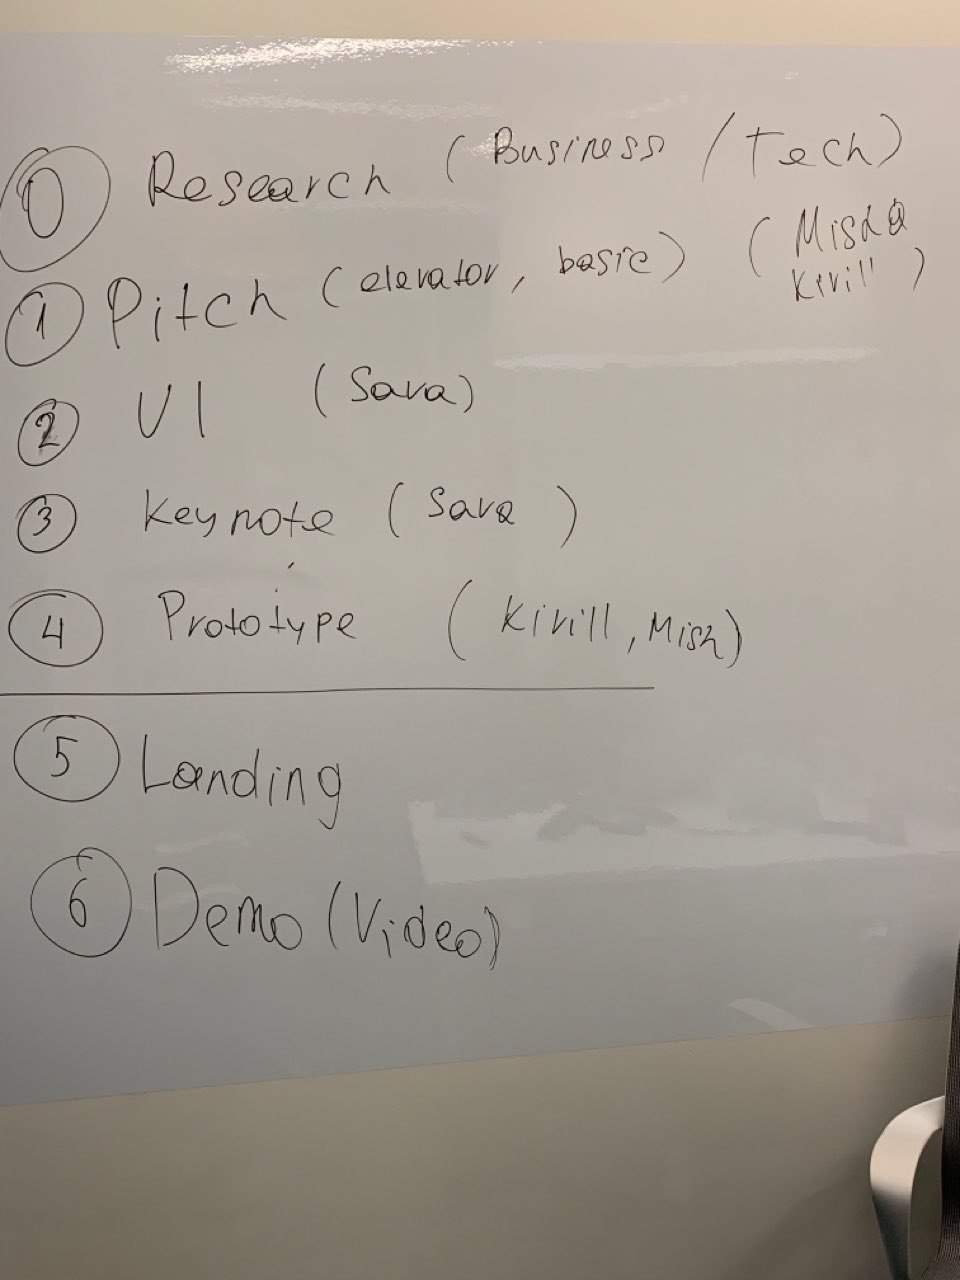 0 Research (Business / Tech)
1 Pitch (elevator, basic) (Misha
Kirill)
2 UI (Sava)
3 Keynote (Sava)
4 Prototype (Kirill, Mish)
5 Landing
6 Demo (Video)